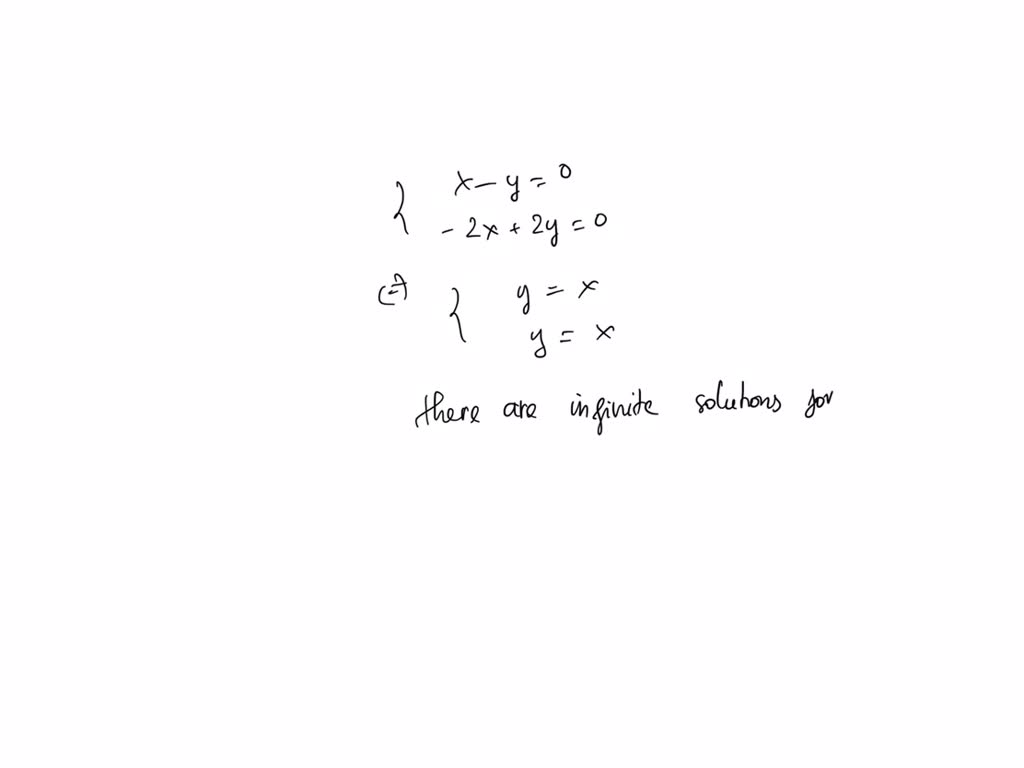 { x - y = 0
- 2x + 2y = 0
(=) { y = x
y = x
there are infinite solutions for